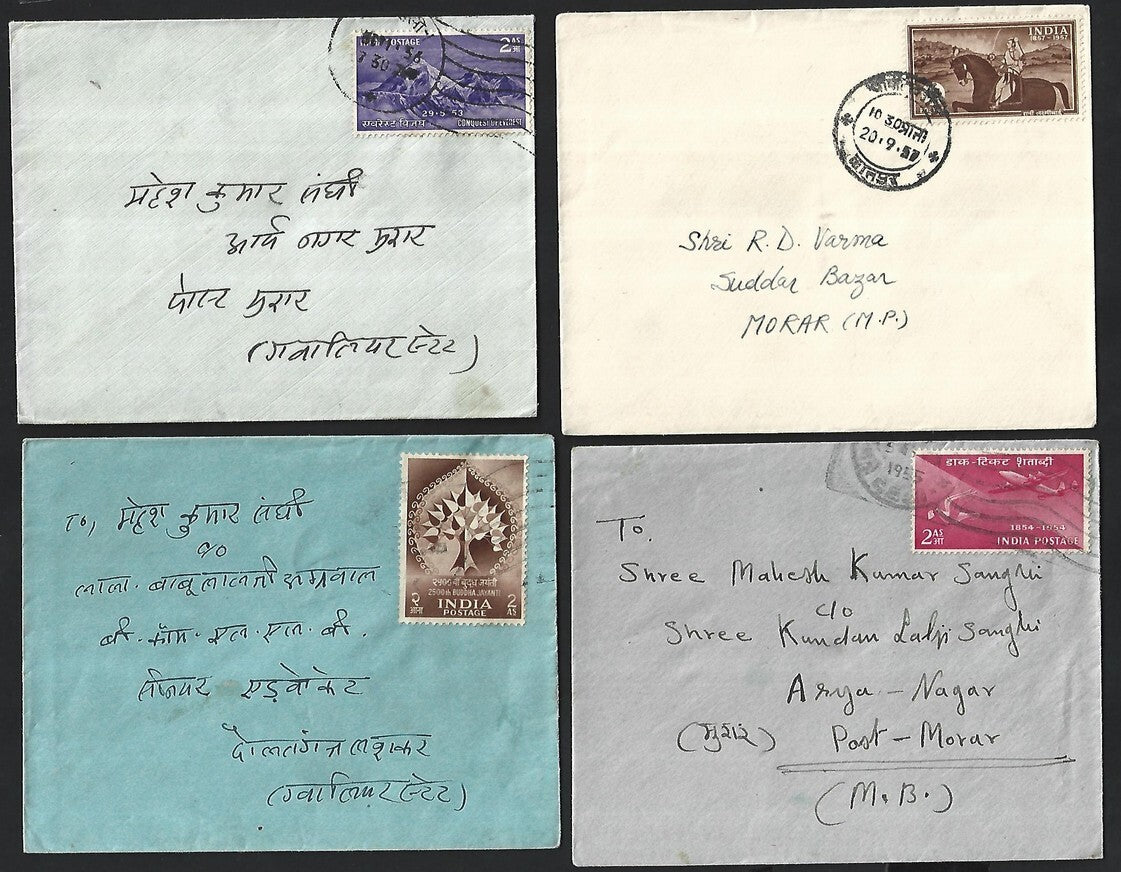 POSTAGE
2 AS
आ
1.56
7 30
29-5-53
एवरेस्ट विजय CONQUEST OF EVEREST
महेश कुमार संघी
आर्य नगर मुरार
पोस्ट मुरार
(ग्वालियर स्टेट)
INDIA
1857-1957
10 30 प्रातः
20.9.57
कानपुर
Shri R. D. Varma
Suddar Bazar
MORAR (M.P.)
To, महेश कुमार संघी
c/o
लाला. बाबूलालजी अग्रवाल
बी. कॉम. एल. एल. बी.
सीनियर एडवोकेट
दौलतगंज लश्कर
(ग्वालियर स्टेट)
२५०० वी बुद्ध जयंती
2500th BUDDHA JAYANTI
२ INDIA 2
आना POSTAGE AS
डाक-टिकट शताब्दी
1854-1954
2 AS
आ INDIA POSTAGE
To.
Shree Mahesh Kumar Sanghi
c/o
Shree Kundan Lalji Sanghi
Arya-Nagar
(मुरार) Post-Morar
(M.B.)